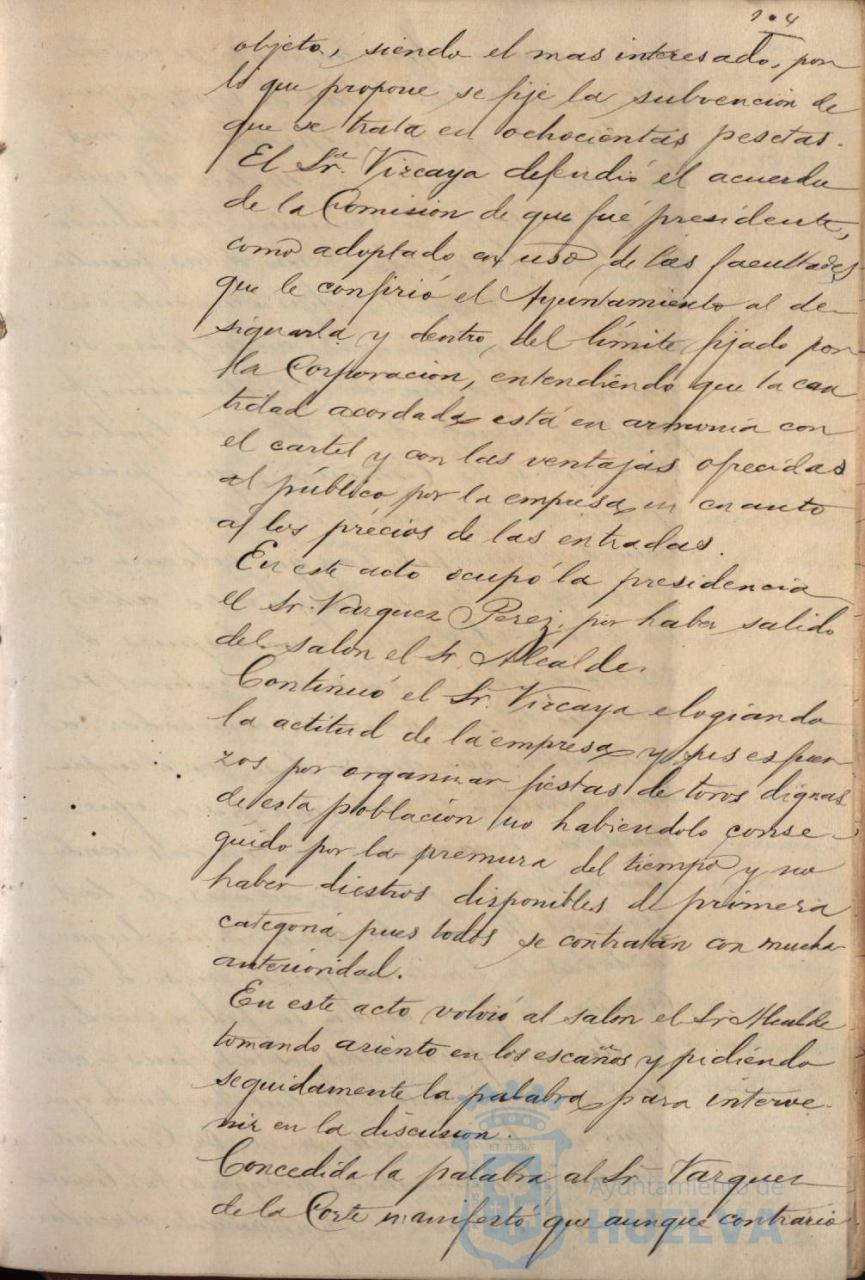 104
objeto, siendo el mas interesado, por
lo que propone se fije la subvencion de
que se trata en ochocientas pesetas.
El Sr. Vizcaya defendió el acuerdo
de la Comision de que fué presidente,
como adoptado en uso de las facultades
que le confirió el Ayuntamiento al de-
signarla y dentro del límite fijado por
la Corporacion, entendiendo que la can
tidad acordada está en armonía con
el cartel y con las ventajas ofrecidas
al público por la empresa en cuanto
a los précios de las entradas.
En este acto ocupó la presidencia
el Sr. Vazquez Perez, por haber salido
del salon el Sr. Alcalde.
Continuó el Sr. Vizcaya elogiando
la actitud de la empresa y sus esfuer
zos por organizar fiestas de toros dignas
de esta población no habiendolo conse-
guido por la premura del tiempo y no
haber diestros disponibles de primera
categoria pues todos se contratan con mucha
anterioridad.
En este acto volvió al salon el Sr. Alcalde
tomando asiento en los escaños y pidiendo
seguidamente la palabra para interve-
nir en la discusion.
Concedida la palabra al Sr. Vazquez
de la Corte manifestó que aunque contrario
ET TERRA
Ayuntamiento de
HUELVA